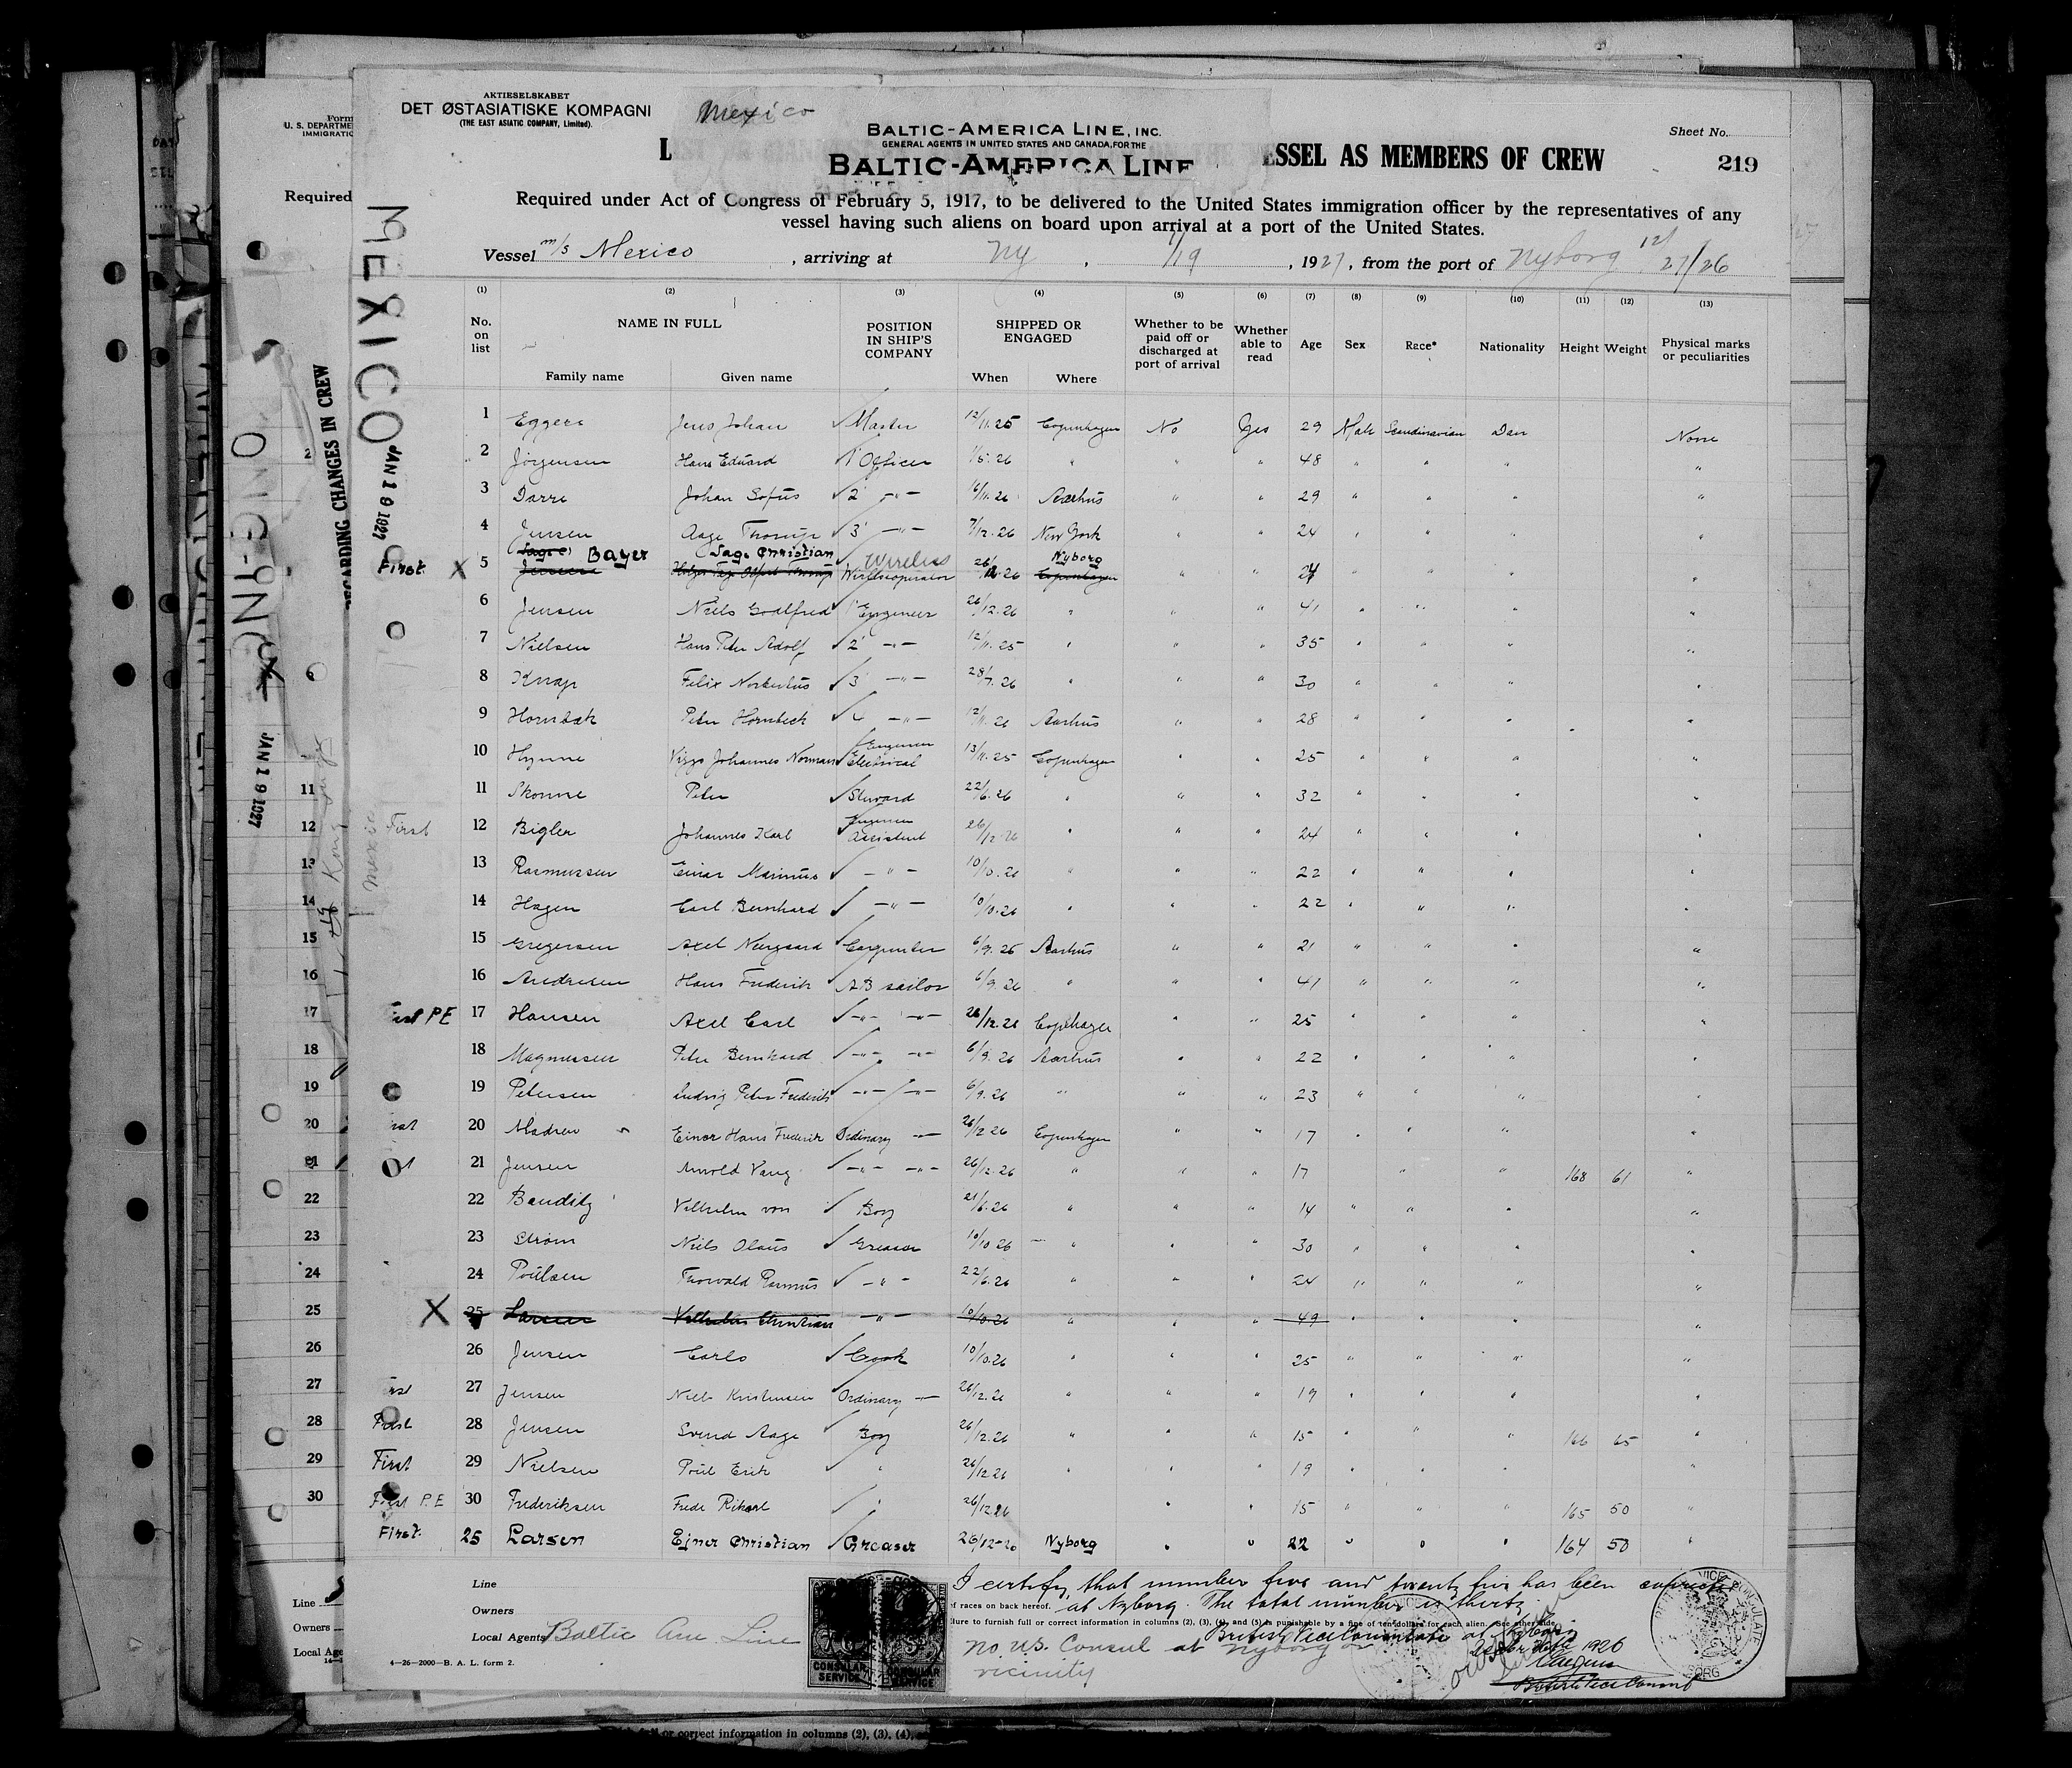 AKTIESELSKABET
DET ØSTASIATISKE KOMPAGNI
(THE EAST ASIATIC COMPANY, Limited).
Mexico
BALTIC-AMERICA LINE, INC.
GENERAL AGENTS IN UNITED STATES AND CANADA, FOR THE
BALTIC-AMERICA LINE
Sheet No.
L ESSEL AS MEMBERS OF CREW 219
Required under Act of Congress of February 5, 1917, to be delivered to the United States immigration officer by the representatives of any
vessel having such aliens on board upon arrival at a port of the United States.
Vessel m/s Mexico, arriving at Ny, 1/19, 1927, from the port of Nyborg 12/27/26
MEXICO
JAN 19 1927
(1) (2) (3) (4) (5) (6) (7) (8) (9) (10) (11) (12) (13)
No. on list NAME IN FULL Family name Given name POSITION IN SHIP'S COMPANY SHIPPED OR ENGAGED When Where Whether to be paid off or discharged at port of arrival Whether able to read Age Sex Race* Nationality Height Weight Physical marks or peculiarities
1 Eggers Jens Johan Master 12/11.25 Copenhagen No Yes 29 Male Scandinavian Dan None
2 Jörgensen Hans Eduard 1' Officer 1/5.26 " " " 48 " " " "
3 Darre Johan Sofus 2' -"- 16/11.26 Aarhus " " 29 " " " "
4 Jensen Aage Thorup 3' -"- 7/12.26 New York " " 24 " " " "
First X 5 Bayer Sage Christian Wireless Wirelessoperator 26/12.26 Nyborg Copenhagen " " 24 " " " "
6 Jensen Niels Godtfred 1' Engineer 26/12.26 " " " 41 " " " "
7 Nielsen Hans Peter Adolf 2' -"- 12/11.25 " " " 35 " " " "
8 Knap Felix Norbertus 3' -"- 28/7.26 " " " 30 " " " "
9 Hornbæk Peter Hornbech 4 -"- 12/11.26 Aarhus " " 28 " " " "
10 Hynne Viggo Johannes Norman Engineer Electrical 13/11.25 Copenhagen " " 25 " " " "
11 Skonne Peter Steward 22/6.26 " " " 32 " " " "
First 12 Bigler Johannes Karl Engineer Assistent 26/12.26 " " " 24 " " " "
13 Rasmussen Einar Marinus -"- 10/10.26 " " " 22 " " " "
14 Hagen Carl Bernhard -"- 10/10.26 " " " 22 " " " "
15 Gregersen Axel Neergaard Carpenter 6/9.26 Aarhus " " 21 " " " "
16 Andresen Hans Frederik AB sailor 6/9.26 " " " 41 " " " "
First PE 17 Hansen Axel Carl -"- -"- 26/12.26 Copenhagen " " 25 " " " "
18 Magnussen Peter Bernhard -"- -"- 6/9.26 Aarhus " " 22 " " " "
19 Petersen Ludvig Peter Frederik -"- -"- 6/9.26 " " " 23 " " " "
20 Madsen Einar Hans Frederik Ordinary -"- 26/12 26 Copenhagen " " 17 " " " "
21 Jensen Arnold Vang -"- -"- 26/12.26 " " " 17 " " 168 61 "
22 Bauditz Vilhelm von Boy 21/6.26 " " " 14 " " " "
23 Strøm Niels Olaus Greaser 10/10 26 " " " 30 " " " "
24 Poulsen Thorvald Rasmus -"- 22/6.26 " " " 24 " " " "
X 25 Larsen Vilhelm Christian -"- 10/10.26 " " " 49 " " " "
26 Jensen Carlo Cook 10/10.26 " " " 25 " " " "
27 Jensen Niels Kristensen Ordinary -"- 26/12.26 " " " 19 " " " "
First 28 Jensen Svend Aage Boy 26/12.26 " " " 15 " " " 166 65 "
First 29 Nielsen Poul Erik " 26/12 26 " " " 19 " " " "
First P.E 30 Frederiksen Frede Rikard " 26/12.26 " " 15 " " " 165 50 "
First 25 Larsen Ejner Christian Greaser 26/12-26 Nyborg " " 22 " " " 164 50 "
I certify that number five and twenty five has been corrected
at Nyborg. The total number is thirty
Line
Owners
Local Agents Baltic Am Line
of races on back hereof.
lure to furnish full or correct information in columns (2), (3), (4), and (5) is punishable by a fine of ten dollars for each alien. See other side.
British Vice Consulate at Nyborg
1926
No U.S. Consul at Nyborg or
vicinity
British Vice Consul
CONSULAR SERVICE
CONSULAR SERVICE
4-26-2000-B. A. L. form 2.
Form
U. S. DEPARTME
IMMIGRATIO
Required
REGARDING CHANGES IN CREW
JAN 19 1927
11
12
13
14
15
16
17
18
19
20
21
22
23
24
25
26
27
28
29
30
Line
Owners
Local Age
or correct information in columns (2), (3), (4),